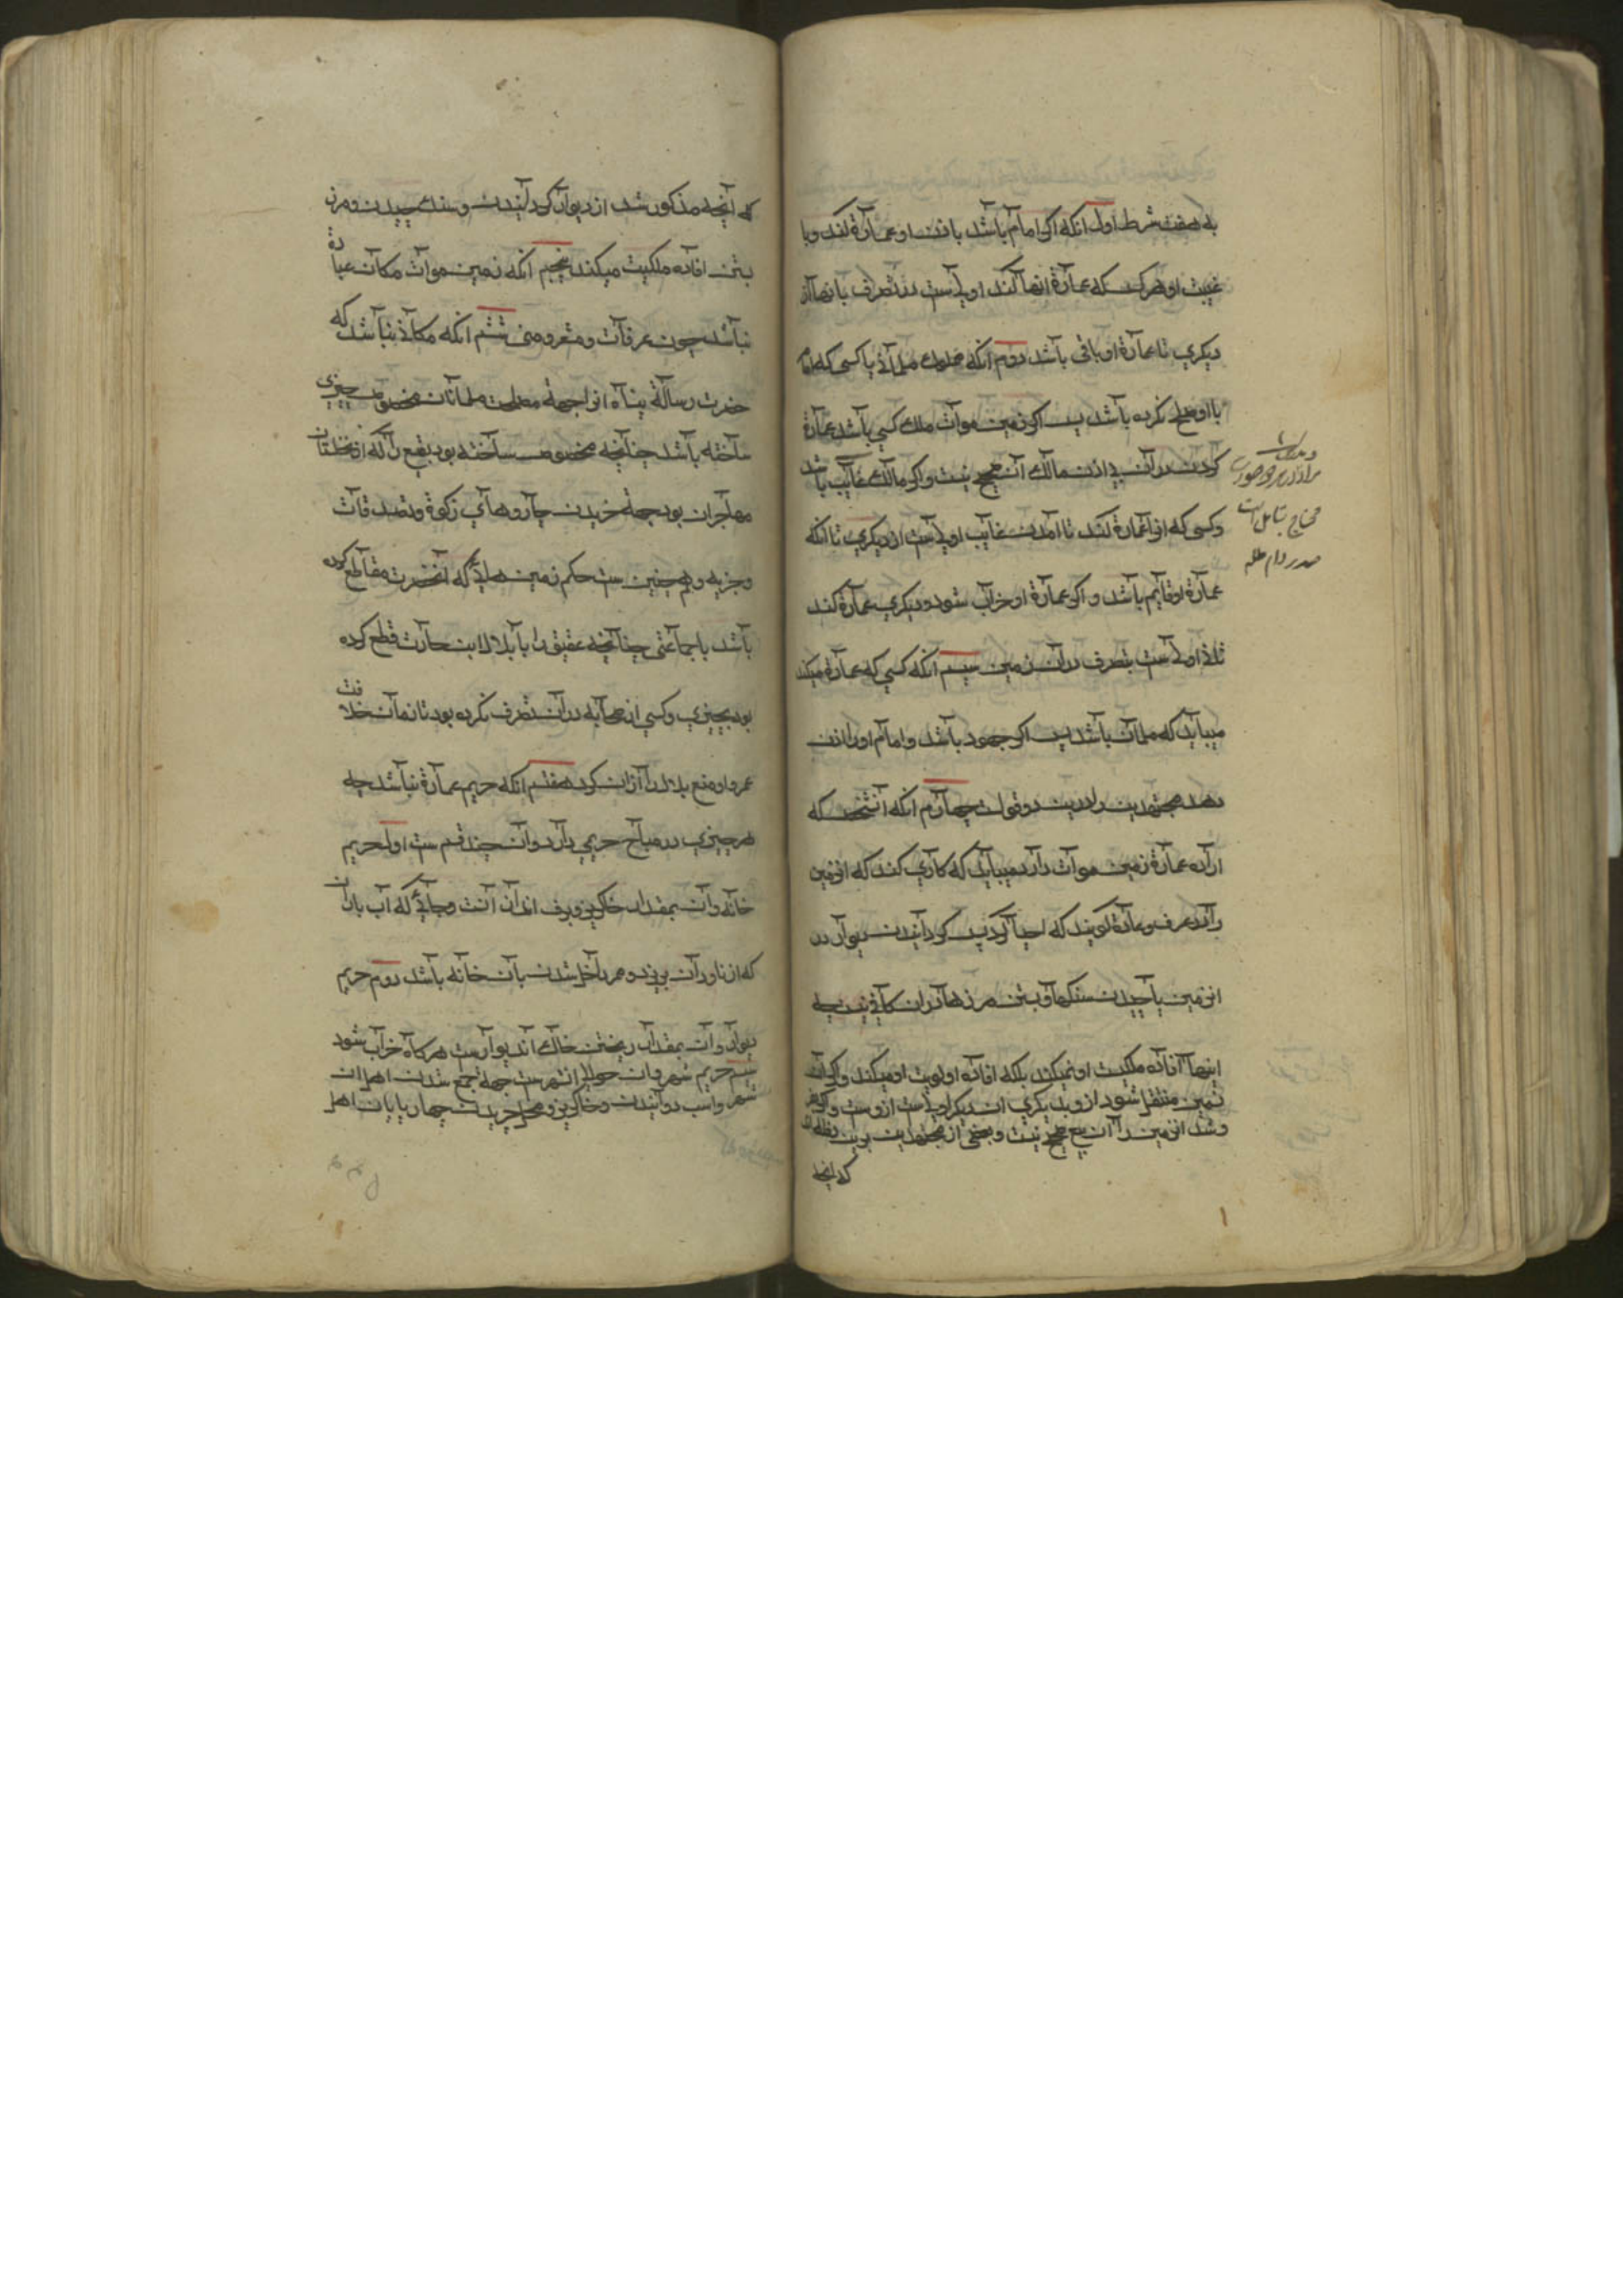 به هفت شرط اول انکه اکر امام باشد باذن او عمارة کند و با
غیبت او هرکس که عمارة انها کند اولیست در تصرف بانها از
دیکری تا عمارة او باقی باشد دوم انکه ملک مسلمانی یا کسی که امام
با او صلح کرده باشد پس اکر زمین موات ملک کسی باشد عمارة
کردن در آن بی اذن مالک آن صحیح نیست و اکر مالک غایب باشد
وکسی که انرا عمارة کند تا آمدن غایب اولیست از دیکری تا انکه
عمارة او قایم باشد و اکر عمارة او خراب شود و دیکری عمارة کند
ثانی اولیست بتصرف در آن زمین سیم انکه کسی که عمارة میکند
میباید که مسلمان باشد پس اکر جهود باشد و امام او را اذن
دهد مجتهدین را درین دو قولست چهارم انکه آنشخص که
اراده عمارة زمین موات دارد میباید که کاری کند که انزمین
را در عرف و عادة کویند که احیا کرد پس کردانیدن دیوار در
انزمین یا چیدن سنکها و بستن مرزها در ان کافی نیست چه
اینها افاده ملکیت او نمیکند بلکه افاده اولویت او میکند و اکر آن
زمین منتقل شود ازو بدیکری ان دیکر اولیست ازو و اکر
وشد انزمین را آن بیع صحیح نیست و بعضی از مجتهدین برین رفته اند
که انچه
محتاج بتامل است
صدر دام ظله
که آنچه مذکور شد از دیوار کردانیدن و سنک چیدن و مرز
بستن افاده ملکیت میکند پنجم انکه زمین موات مکان عبادة
نباشد چون عرفات و مشعر و منی ششم انکه مکانی نباشد که
حضرت رسالة پناه انرا جهة مصلحت مسلمانان مخصوص بچیزی
ساخته باشد چنانچه مخصوص ساخته بود بقیع را که از نخلستان
مهاجران بود جهة خریدن چارواهای زکوة و تصدقات
و جزیه و همچنین ست حکم زمین هایی که آنحضرت مقاطع کرده
باشد با جماعتی چنانچه عقیق را با بلال ابن حارث قطع کرده
بود بچیزی و کسی از صحابه در آن تصرف نکرده بود تا زمان خلافت
عمر و او منع بلال را ازان کرد هفتم انکه حریم عمارة نباشد چه
هر چیزی در مباح حریمی دارد و آن چند قسم ست اول حریم
خانه و آن بمقدار خاکریز و برف انداز آنست و جایی که آب باران
که از ناودان بریزد و ممر داخل شدن بآن خانه باشد دوم حریم
دیوار و آن بمقدار ریختن خاک اندیوارست هرکاه خراب شود
سیم حریم شهر و ان حوالی انشهرست جهة جمع شدن اهل ان
شهر و اسب دوانیدن و خاکریز و محل چریدن چهارپایان اهل